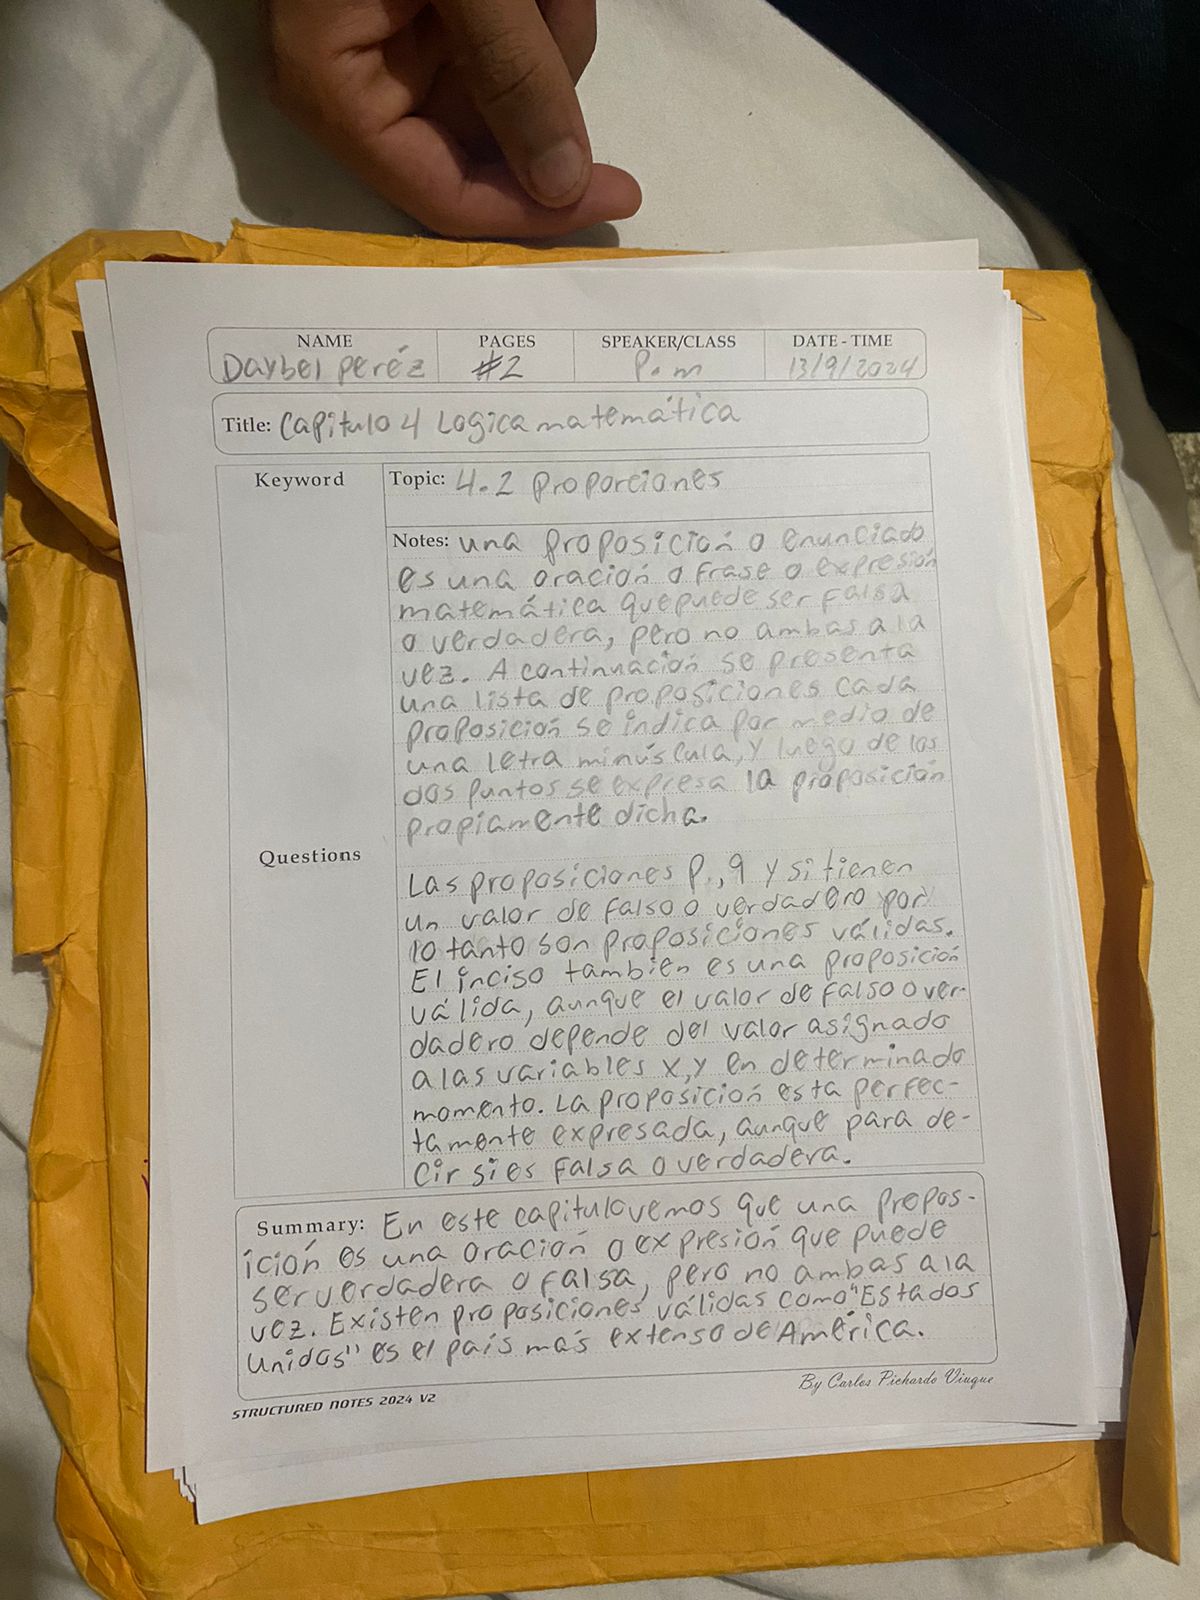 NAME PAGES SPEAKER/CLASS DATE - TIME
Daybel Peréz #2 P.m 13/9/2024
Title: Capitulo 4 Logica matemática
Keyword
Topic: 4.2 Proporciones
Notes: una proposición o enunciado
es una oración o frase o expresión
matemática que puede ser falsa
o verdadera, pero no ambas a la
vez. A continuación se presenta
una lista de proposiciones cada
proposición se indica por medio de
una letra minúscula, y luego de los
dos puntos se expresa la proposición
propiamente dicha.
Questions
Las proposiciones P., q y si tienen
un valor de falso o verdadero por
lo tanto son proposiciones válidas.
El inciso también es una proposición
válida, aunque el valor de falso o ver-
dadero depende del valor asignado
a las variables x,y en determinado
momento. La proposición esta perfec-
tamente expresada, aunque para de-
cir si es falsa o verdadera.
Summary: En este capitulo vemos que una propos-
ición es una oración o expresión que puede
ser verdadera o falsa, pero no ambas a la
vez. Existen proposiciones válidas como "Estados
Unidos" es el país más extenso de América.
By Carlos Pichardo Viuque
STRUCTURED NOTES 2024 V2